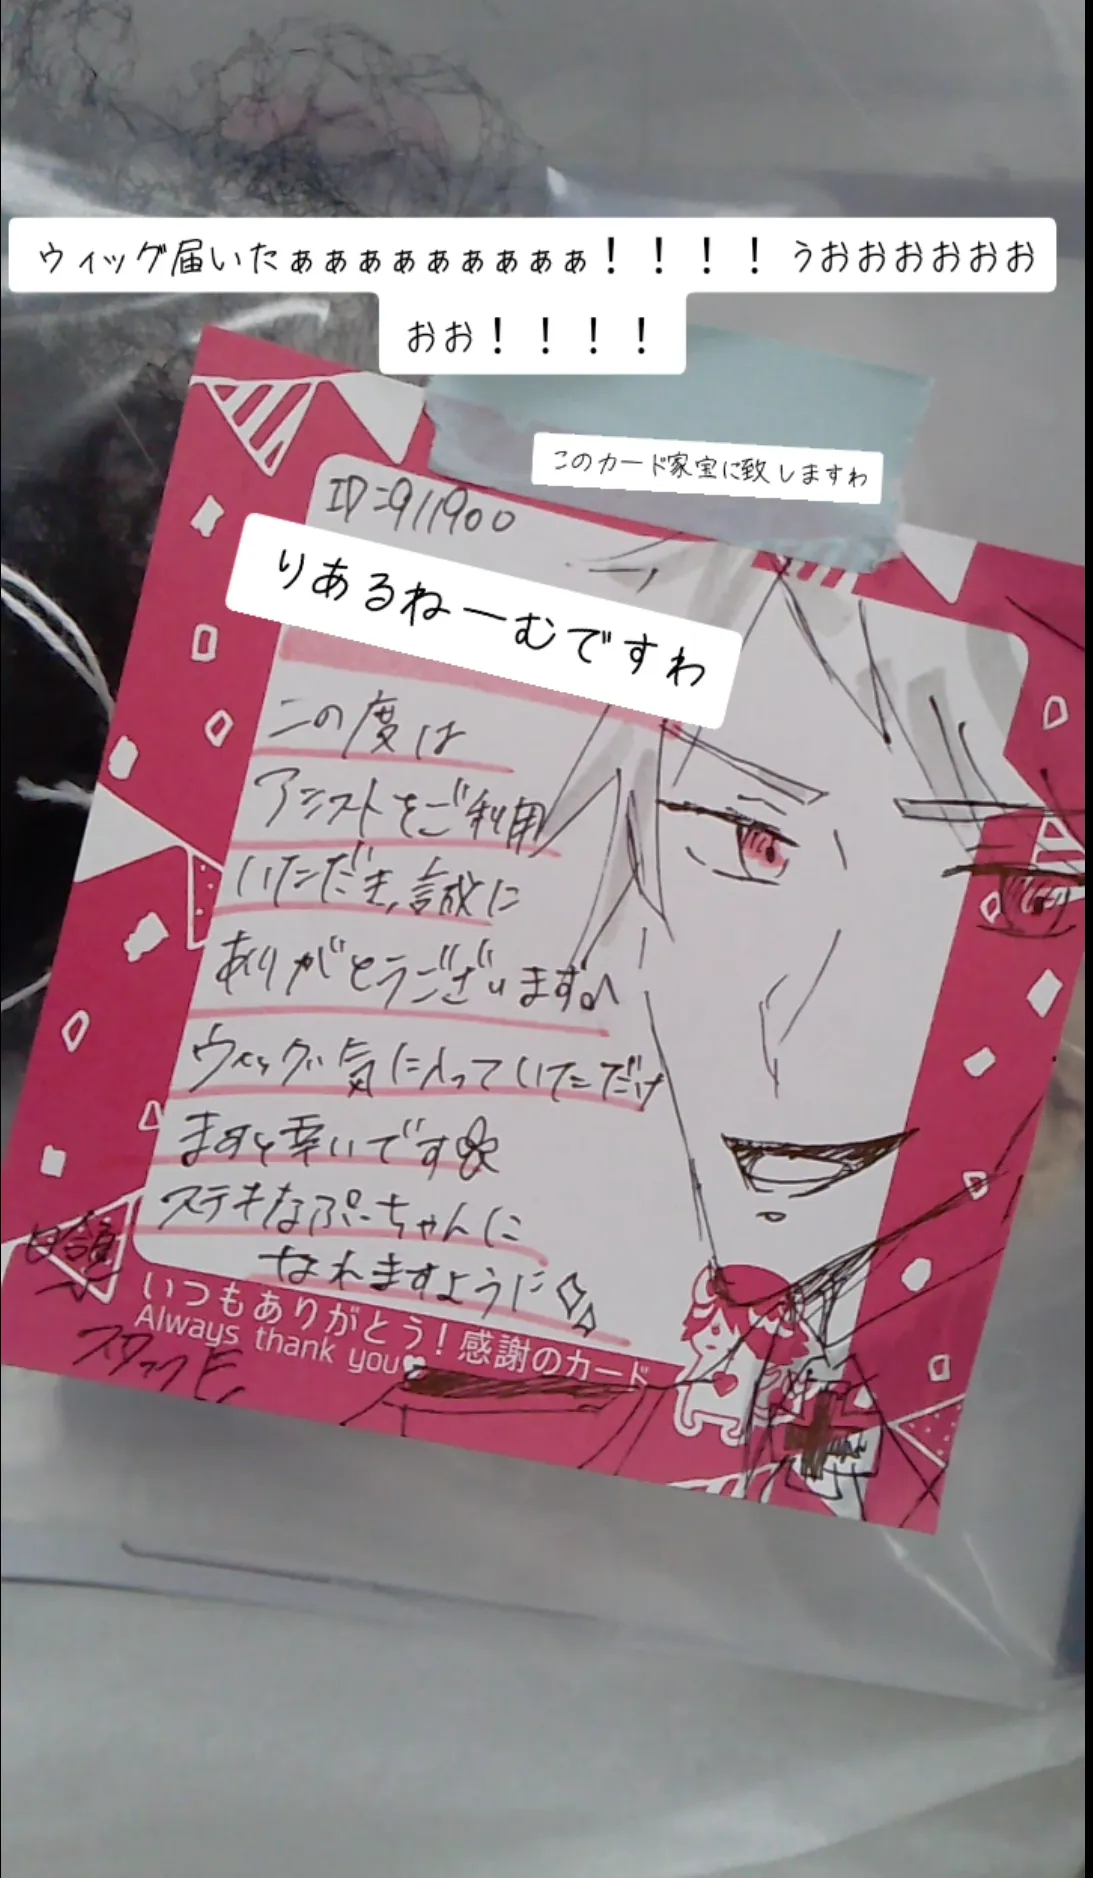 ウィッグ届いたぁぁぁぁぁぁぁぁぁ！！！！うおおおおおお
おお！！！！
このカード家宝に致しますわ
ID:911900
りあるねーむですわ
この度は
アシストをご利用
いただき、誠に
ありがとうございます♪
ウィッグ気に入っていただけ
ますと幸いです
ステキなぷーちゃんに
なれますように
いつもありがとう！感謝のカード
Always thank you
スタッフE